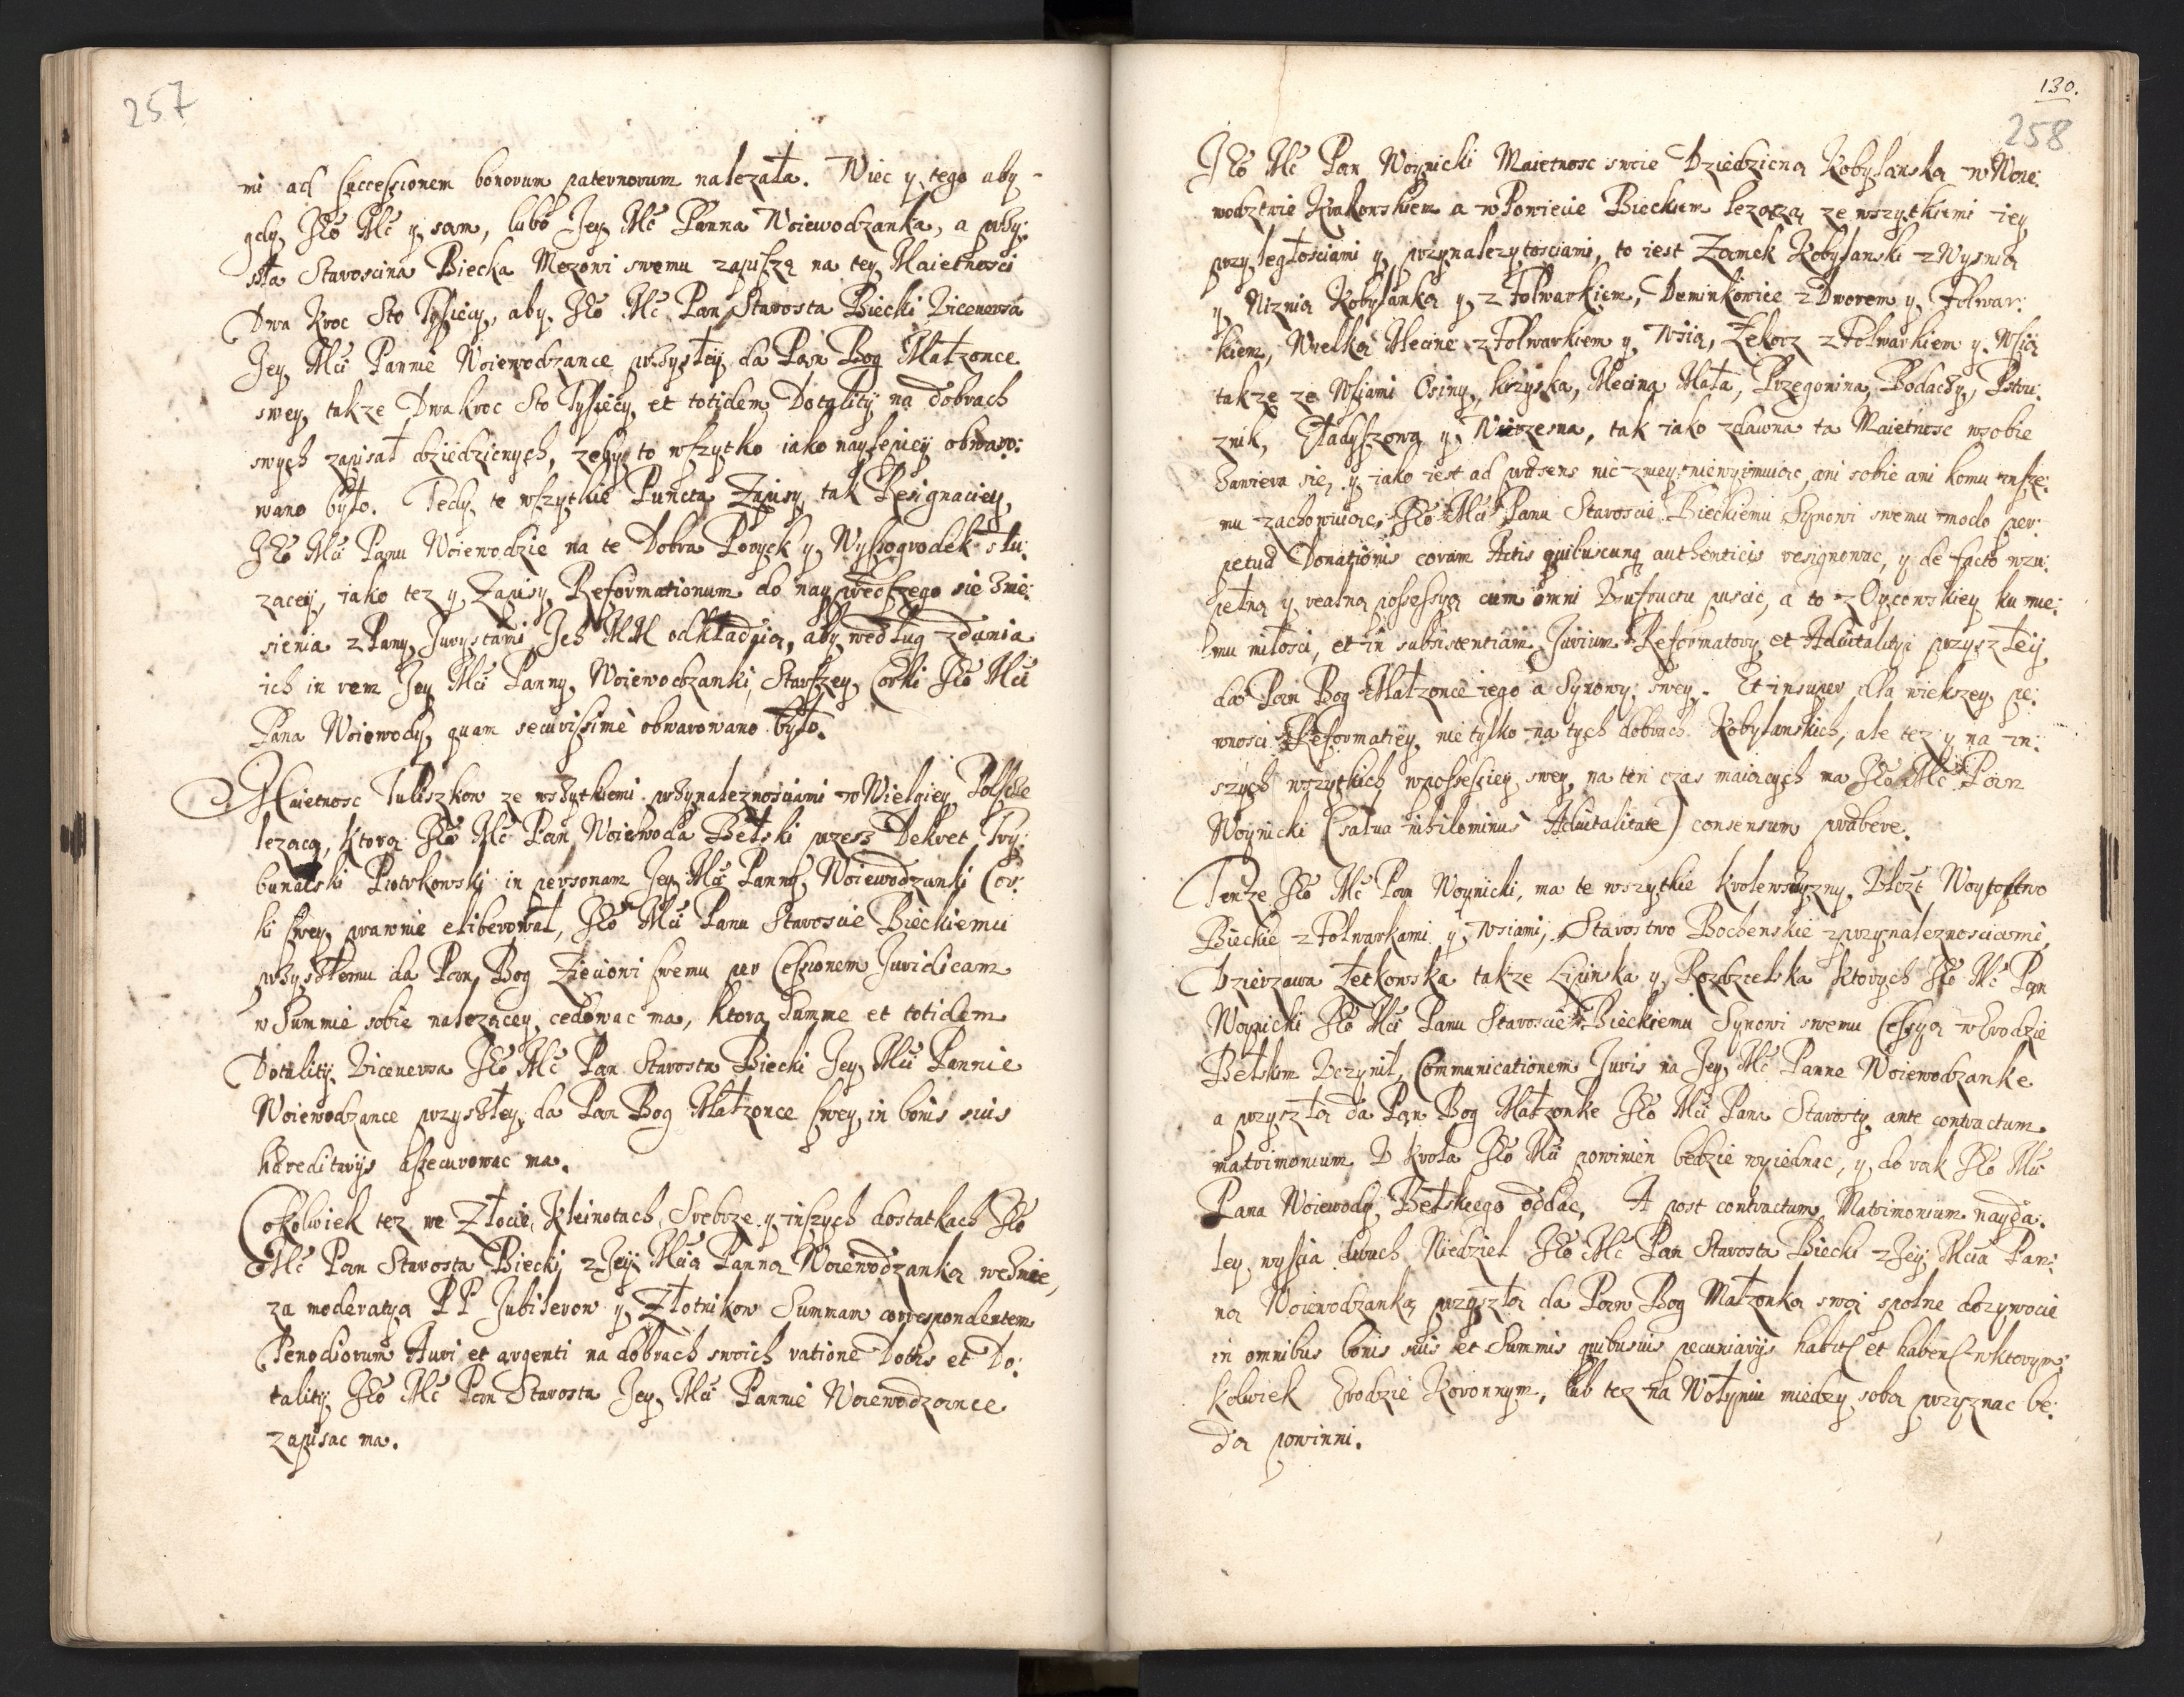 257
mi ad successionem bonorum paternorum nalezała. Wiec y tego aby
gdy Jeo Mć y sam, lubo Jey Mć Panna Woiewodzanka, a przy:
szła Staroscina Biecka Mezowi swemu zapiszą na tey Maietnosci
Dwa kroc Sto Tysiecy, aby Jeo Mć Pan Starosta Biecki Viceversa
Jey Mći Pannie Woiewodzance przyszłey da Pan Bog Małzonce
swey, takze Dwakroc Sto Tysiecy et totidem Dotality na dobrach
swych zapisał dziedzicnych, zeby to wszytko iako naylepiey obwaro:
wano było. Tedy te wszytkie Puncta Zapisy tak Resignaciey
Jeo Mći Panu Woiewodzie na te Dobra Poryck y Wyssogrodek słu:
zacey, iako tez y Zapisy Reformationum do naypredszego sie znie:
sienia z Pany Jurystami Jch MM odkładaią, aby według zdania
ich in rem Jey Mći Panny Woiewodzanki Starszey Corki Jeo Mći
Pana Woiewody, quam securissimè obwarowano było.
Maietnosc Tuliszkow ze wszytkiemi przynaleznosciami w Wielgiey Polscze
lezącą, ktorą Jeo Mć Pan Woiewoda Bełski przesz Dekret Try:
bunalski Piotrkowski in personam Jey Mći Panny Woiewodzanki Cor:
ki swey prawnie eliberował, Jeo Mći Panu Staroscie Bieckiemu
przyszłemu da Pan Bog Zięciowi swemu per Cessionem Juridicam
w Summie sobie nalezącey cedowac ma, ktorą Summe et totidem
Dotality Viceversa Jeo Mć Pan Starosta Biecki Jey Mći Pannie
Woiewodzance przyszłey da Pan Bog Małzonce swey in bonis suis
hæreditarijs assecurowac ma.
Cokolwiek tez we Złocie, Kleinotach, Srebrze y inszych dostatkach Jeo
Mć Pan Starosta Biecki z Jey Mćią Panną Woiewodzanką wezmie,
za moderatyą PP Jubilerow y Złotnikow Summam correspondentem
Penodiorum Auri et argenti na dobrach swoich ratione Dotis et Do:
tality Jeo Mć Pan Starosta Jey Mći Pannie Woiewodzance
zapisac ma.
130.
258
Jeo Mć Pan Woynicki Maietnosc swoie Dziedzicną Kobylanską w Woie:
wodztwie Krakowskiem a w Powiecie Bieckiem lezącą ze wszytkiemi iey
przyległosciami y przynalezytosciami, to iest Zamek Kobylanski z Wysnią
y Niznią Kobylanką y z Folwarkiem, Dominkowice z Dworem y Folwar:
kiem, Wielką Mecine z Folwarkiem y Wsią, Zekorz z Folwarkiem y Wsią
takze ze Wsiami Osiny, kryska, Mecina Mała, Przegonina, Bodachy, Pstrą:
znik, Gładyszową y Nieczesna, tak iako zdawna ta Maietnosc w sobie
zawiera się, y iako iest ad præsens nic zniey niewyimuiąc, ani sobie ani komu insze:
mu zachowuiąc, Jeo Mći Panu Staroscie Bieckiemu Synowi swemu modo per:
petuæ Donationis coram Actis quibuscunq authenticis resignowac, y de facto w zu:
pełną y realną possessyą cum omni Vsufructu puscic, a to z Oycowskiey ku nie:
mu miłosci, et in subsistentiam Jurium Reformatory et Aduitalitij przyszłey
da Pan Bog Małzonce iego a Synowy swey. Et insuper dla wiekszey pe:
wnosci Reformatiey nie tylko na tych dobrach Kobylanskich, ale tez y na in:
szych wszytkich w possessiey swey na ten czas maiących ma Jeo Mć Pan
Woynicki (salua nihilominus Aduitalitate) consensum præbere.
Tenze Jeo Mć Pan Woynicki, ma te wszytkie krolewszyzny Woytostwo
Bieckie z Folwarkami y Wsiami, Starostwo Bochenskie z przynaleznosciami,
Dzierzawa Łetkowska takze Lipinska y Rozdzielska ktorych Jeo Mć Pan
Woynicki Jeo Mći Panu Staroscie Bieckiemu Synowi swemu Cessyą w Grodzie
Bełskim Vczynił, Communicationem Juris na Jey Mć Panne Woiewodzanke
a przyszłą da Pan Bog Małzonke Jeo Mći Pana Starosty ante contractum
matrimonium V krola Jeo Mći powinien bedzie wyiednac, y do rak Jeo Mći
Pana Woiewody Bełskiego oddac. A post contractum Matrimonium nayda:
ley wyscia dwuch Niedziel Jeo Mć Pan Starosta Biecki z Jey Mćia Pan:
ną Woiewodzanką przyszłą da Pan Bog Małzonką swą społne dozywocie
in omnibus bonis suis et Summis quibusuis pecuniarijs habit et haben w ktorym:
kolwiek Grodzie Koronnym, lub tez na Wołyniu miedzy sobą przyznac be:
dą powinni.